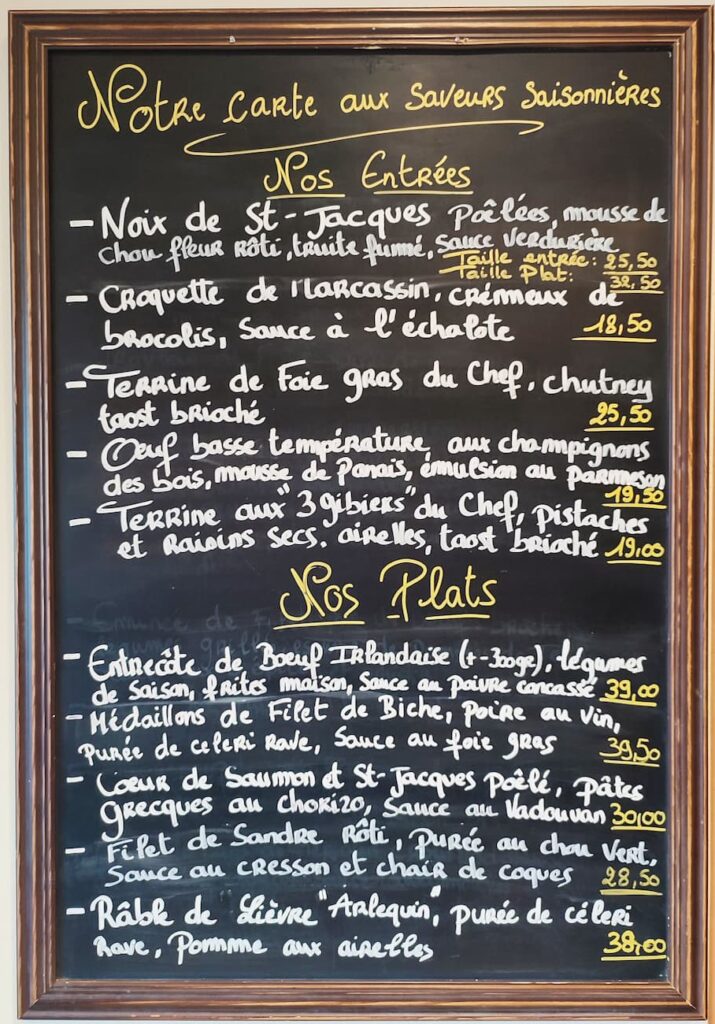 Notre carte aux saveurs saisonnières
Nos Entrées
- Noix de St-Jacques Poêlées, mousse de
chou fleur rôti, truite fumé, sauce verdurière
Taille entrée: 25,50
Taille Plat: 32,50
- Croquette de Marcassin, crémeux de
brocolis, sauce à l'échalote 18,50
- Terrine de Foie gras du Chef, chutney
taost brioché 25,50
- Oeuf basse température, aux champignons
des bois, mousse de Panais, émulsion au parmesan
19,50
- Terrine aux "3 gibiers" du Chef, pistaches
et Raisins secs. airelles, taost brioché 19,00
Nos Plats
- Entrecôte de Boeuf Irlandaise (+-300gr), légumes
de saison, frites maison, sauce au poivre concassé 39,00
- Médaillons de Filet de Biche, Poire au vin,
Purée de celeri rave, sauce au foie gras 39,50
- Coeur de Saumon et St-Jacques Poêlé, Pâtes
grecques au chorizo, sauce au Vadouvan 30,00
- Filet de Sandre Rôti, purée au chou vert,
Sauce au cresson et chair de coques 28,50
- Râble de Lièvre "Arlequin", purée de céleri
Rave, Pommme aux airelles 38,00